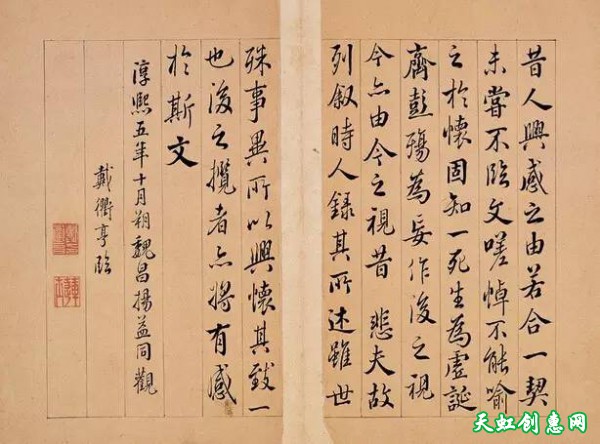 昔人興感之由若合一契
未嘗不臨文嗟悼不能喻
之於懷固知一死生為虛誕
齊彭殤為妄作後之視
今亦由今之視昔 悲夫故
列敘時人錄其所述雖世
殊事異所以興懷其致一
也後之攬者亦將有感
於斯文
淳熙五年十月朔魏昌揚益同觀
戴衢亨臨
天虹创惠网